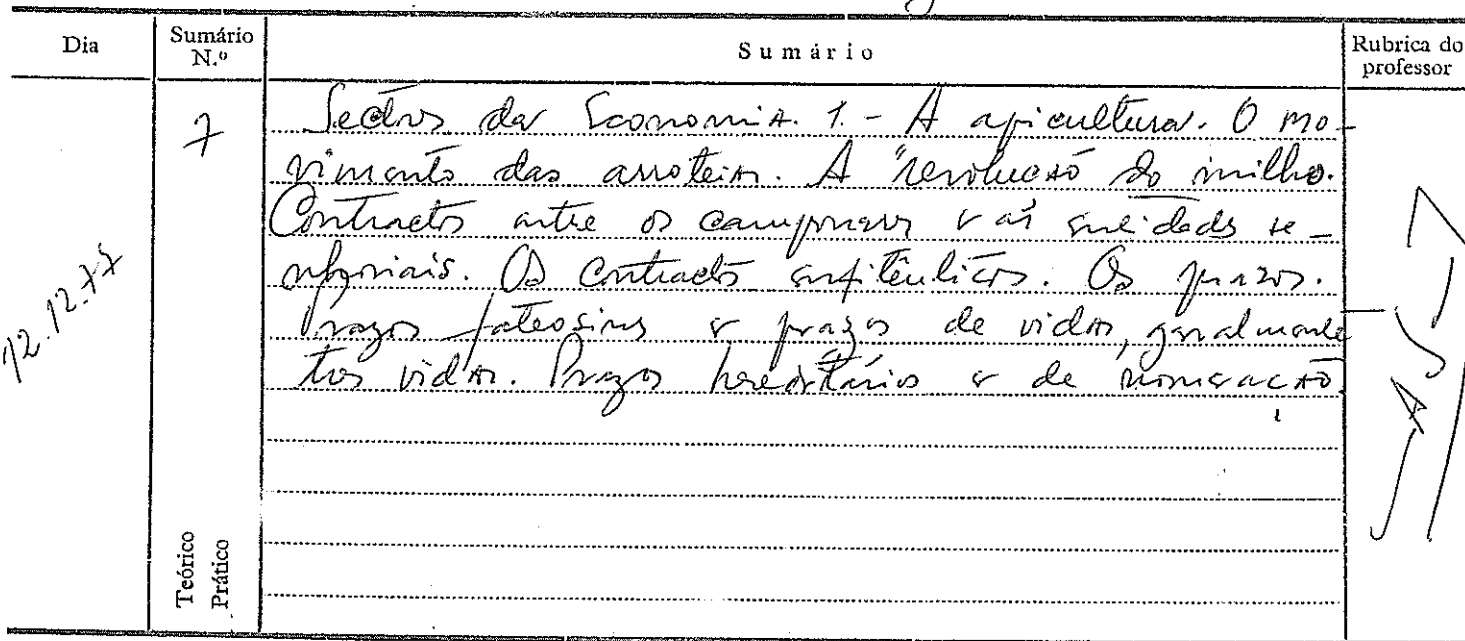 Dia
Sumário N.º
Sumário
Rubrica do professor
12.12.77
7
Sectores da Economia. 1. - A agricultura. O mo-
vimento das arroteias. A "revolução do milho.
Contractos entre os camponeses e as entidades se-
nhoriais. Os contractos enfitêuticos. Os prazos.
Prazos fateosins e prazos de vidas, geralmente
tres vidas. Prazos hereditários e de nomeação.
Teórico
Prático